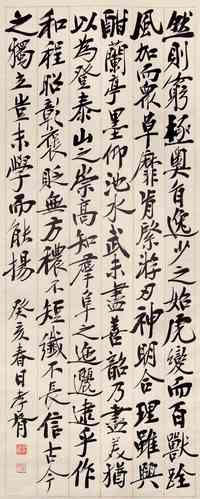 然則窮極奧旨逸少之始虎變而百獸跧
風加而眾草靡肯綮游刃神明合理雖興
酣蘭亭墨仰池水武未盡善韶乃盡美猶
以為登泰山之崇高知羣阜之迤邐逮乎作
程昭彰褒貶無方穠不短纖不長信古今
之獨立豈末學而能揚
癸亥春日孝胥